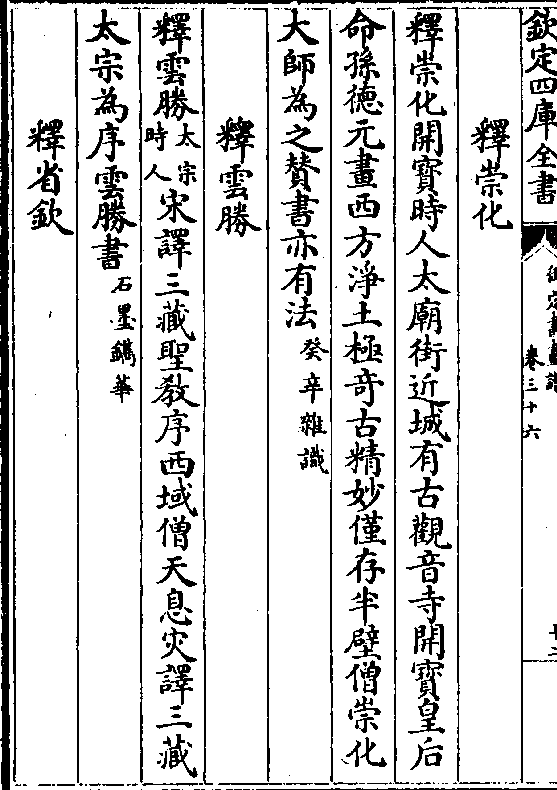 欽定四庫全書
卷三十六
釋崇化
釋崇化開寳時人太廟街近城有古觀音寺開寳皇后
命孫德元畫西方淨土極竒古精妙僅存半壁僧崇化
大師為之贊書亦有法癸辛雜識
釋雲勝
釋雲勝太宗時人宋譯三藏聖教序西域僧天息災譯三藏
太宗為序雲勝書石墨鐫華
釋省欽